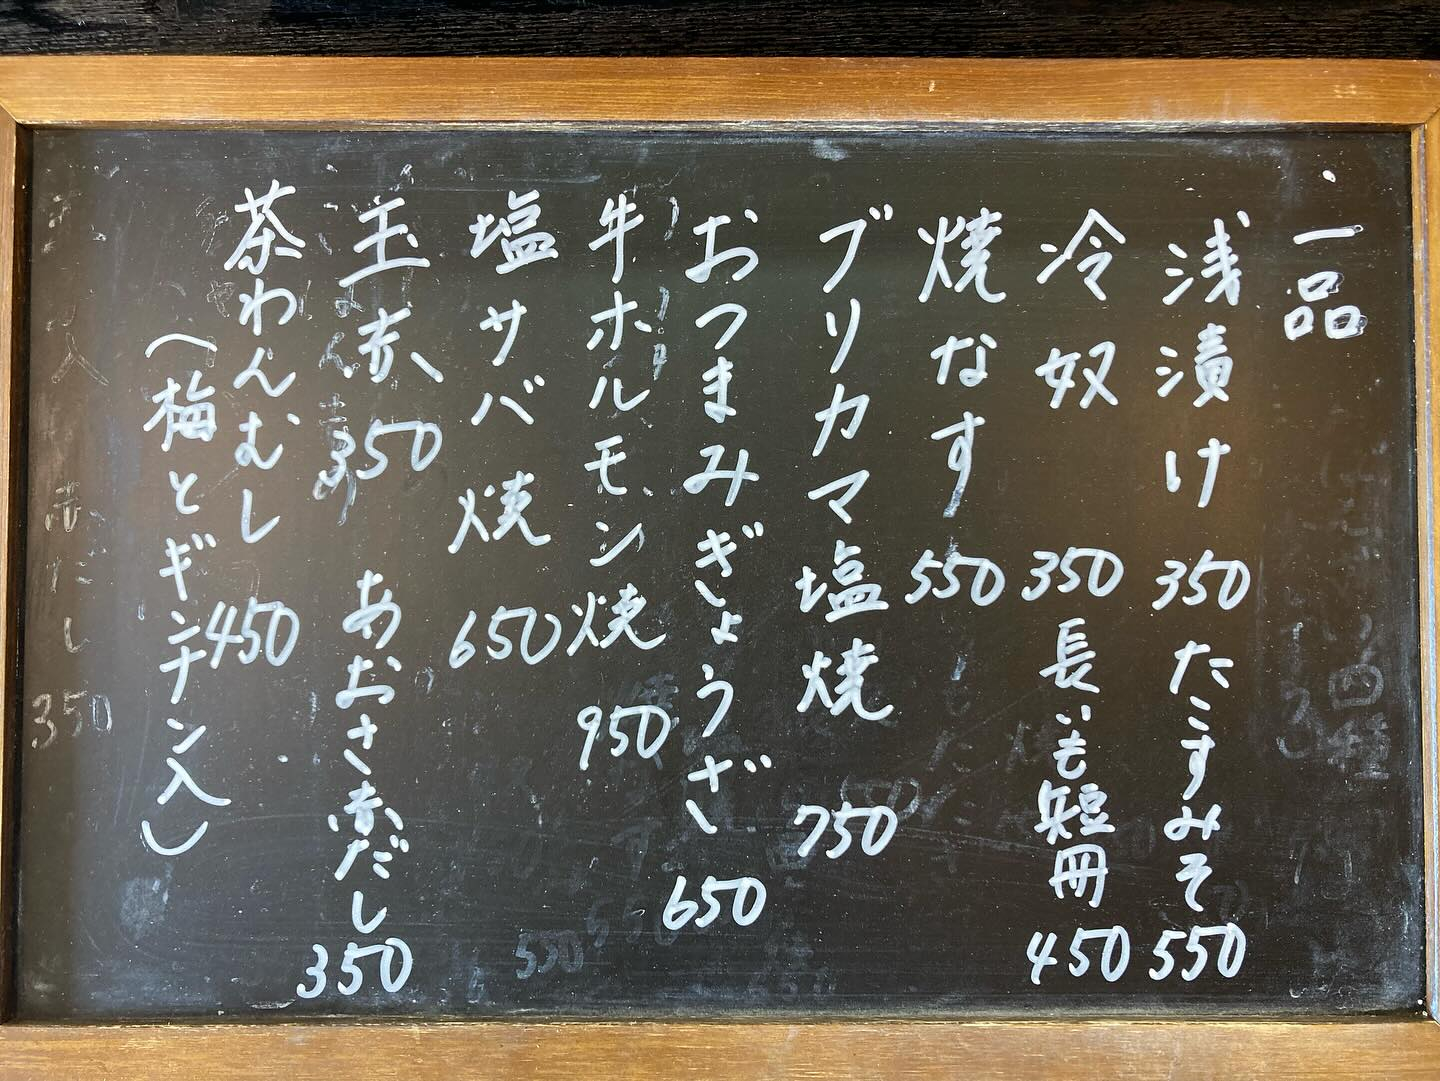 一品
浅漬け 350 たこすみそ 550
冷奴 350 長いも短冊 450
焼なす 550
ブリカマ塩焼 750
おつまみぎょうざ 650
牛ホルモン焼 950
塩サバ焼 650
玉素 350 あおさ赤だし 350
茶わんむし 450
(梅とギンナン入)